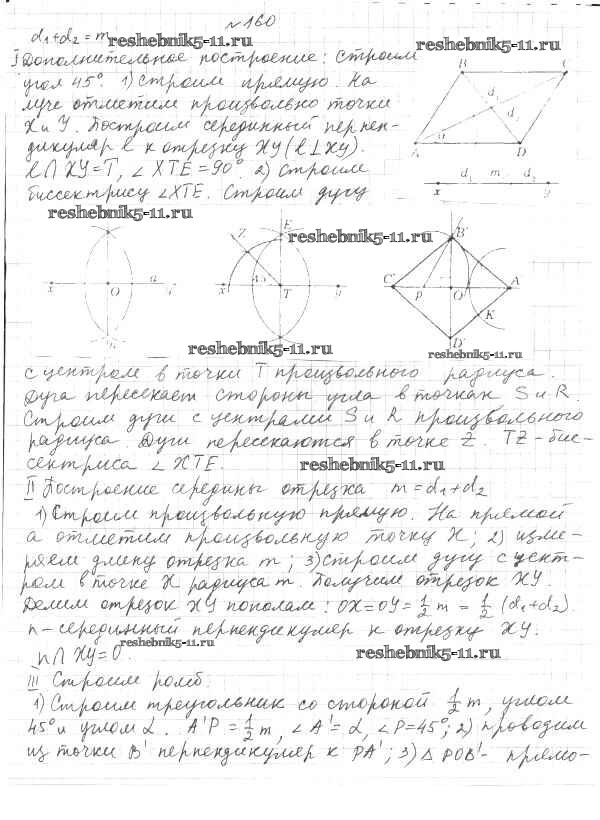 №160
d₁+d₂=m
reshebnik5-11.ru
reshebnik5-11.ru
I Дополнительное построение: Строим
угол 45°. 1) Строим прямую. На
луче отметим произвольно точки
X и Y. Построим серединный перпен-
дикуляр l к отрезку XY (l⊥XY).
l∩XY=T, ∠XTE=90°. 2) Строим
биссектрису ∠XTE. Строим дугу
B C
d₁
d₂
α
A D
d₁ m d₂
x y
reshebnik5-11.ru
reshebnik5-11.ru
x O a y
Z E
45°
x T y
B'
C' P O' A'
K
D'
reshebnik5-11.ru
reshebnik5-11.ru
с центром в точки T произвольного радиуса.
Дуга пересекает стороны угла в точках S и R.
Строим дуги с центрами S и R произвольного
радиуса. Дуги пересекаются в точке Z. TZ-бис-
сектриса ∠XTE.
reshebnik5-11.ru
II Построение середины отрезка m=d₁+d₂
1) Строим произвольную прямую. На прямой
a отметим произвольную точку X; 2) изме-
ряем длину отрезка m; 3) строим дугу с цент-
ром в точке X радиуса m. Получим отрезок XY.
Делим отрезок XY пополам: OX=OY=½m=½(d₁+d₂).
n-серединный перпендикуляр к отрезку XY.
reshebnik5-11.ru
n∩XY=O
reshebnik5-11.ru
III Строим ромб:
1) Строим треугольник со стороной ½m, углом
45° и углом α. A'P=½m, ∠A'=α, ∠P=45°; 2) проводим
из точки B' перпендикуляр к PA'; 3) △POB'- прямо-